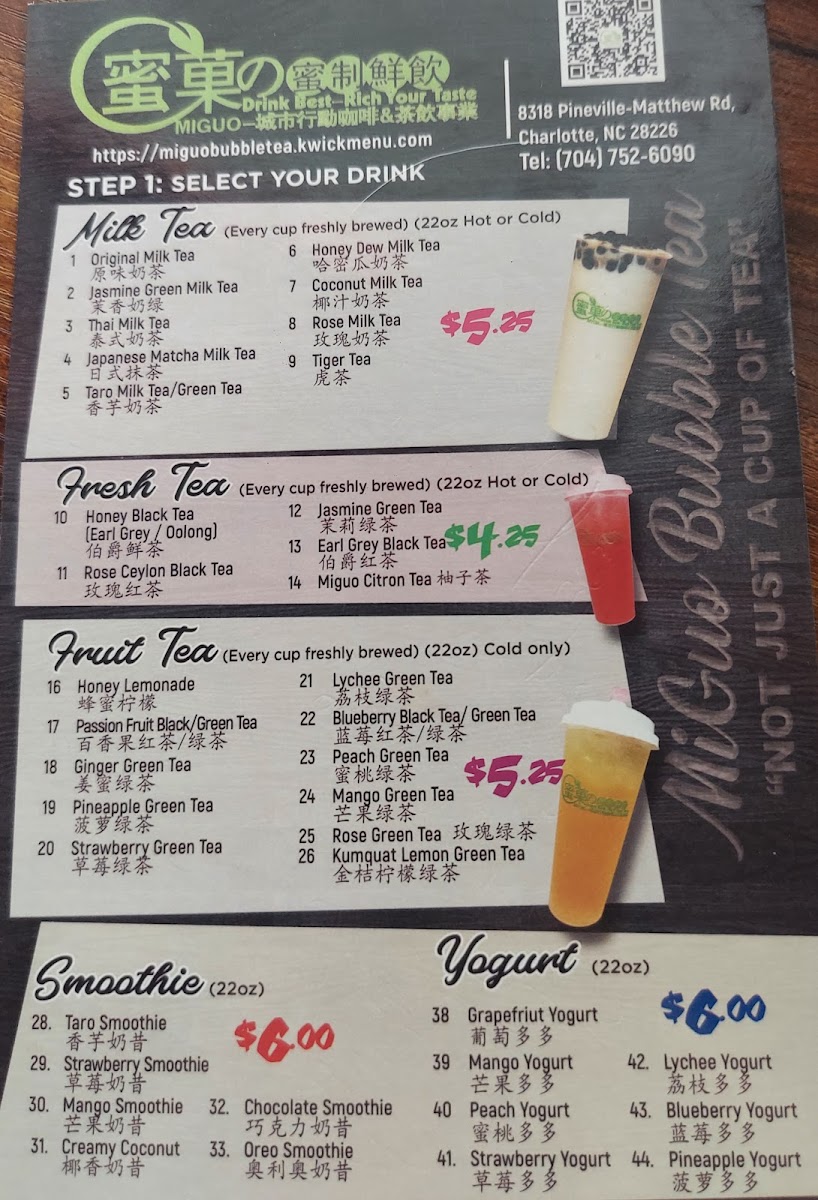 蜜菓の蜜制鮮飲
Drink Best-Rich Your Taste
MIGUO-城市行動咖啡&茶飲事業
https://miguobubbletea.kwickmenu.com
8318 Pineville-Matthew Rd,
Charlotte, NC 28226
Tel: (704) 752-6090
STEP 1: SELECT YOUR DRINK
Milk Tea (Every cup freshly brewed) (22oz Hot or Cold)
1 Original Milk Tea
原味奶茶
2 Jasmine Green Milk Tea
茉香奶绿
3 Thai Milk Tea
泰式奶茶
4 Japanese Matcha Milk Tea
日式抹茶
5 Taro Milk Tea/Green Tea
香芋奶茶
6 Honey Dew Milk Tea
哈密瓜奶茶
7 Coconut Milk Tea
椰汁奶茶
8 Rose Milk Tea
玫瑰奶茶
9 Tiger Tea
虎茶
$5.25
Fresh Tea (Every cup freshly brewed) (22oz Hot or Cold)
10 Honey Black Tea
(Earl Grey / Oolong)
伯爵鲜茶
11 Rose Ceylon Black Tea
玫瑰红茶
12 Jasmine Green Tea
茉莉绿茶
13 Earl Grey Black Tea
伯爵红茶
14 Miguo Citron Tea 柚子茶
$4.25
Fruit Tea (Every cup freshly brewed) (22oz) Cold only)
16 Honey Lemonade
蜂蜜柠檬
17 Passion Fruit Black/Green Tea
百香果红茶/绿茶
18 Ginger Green Tea
姜蜜绿茶
19 Pineapple Green Tea
菠萝绿茶
20 Strawberry Green Tea
草莓绿茶
21 Lychee Green Tea
荔枝绿茶
22 Blueberry Black Tea/ Green Tea
蓝莓红茶/绿茶
23 Peach Green Tea
蜜桃绿茶
24 Mango Green Tea
芒果绿茶
25 Rose Green Tea 玫瑰绿茶
26 Kumquat Lemon Green Tea
金桔柠檬绿茶
$5.25
Smoothie (22oz)
28. Taro Smoothie
香芋奶昔
29. Strawberry Smoothie
草莓奶昔
30. Mango Smoothie
芒果奶昔
31. Creamy Coconut
椰香奶昔
32. Chocolate Smoothie
巧克力奶昔
33. Oreo Smoothie
奥利奥奶昔
$6.00
Yogurt (22oz)
38 Grapefriut Yogurt
葡萄多多
39 Mango Yogurt
芒果多多
40 Peach Yogurt
蜜桃多多
41. Strawberry Yogurt
草莓多多
42. Lychee Yogurt
荔枝多多
43. Blueberry Yogurt
蓝莓多多
44. Pineapple Yogurt
菠萝多多
$6.00
MiGuo Bubble Tea
"NOT JUST A CUP OF TEA"